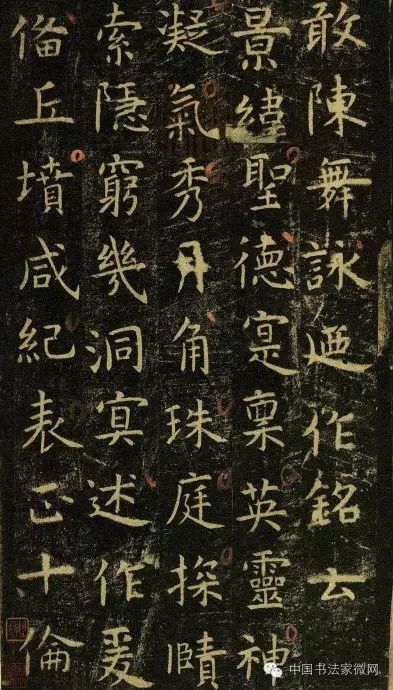 敢陳舞詠迺作銘云
景緯聖德寔稟英靈神
凝氣秀月角珠庭探賾
索隱窮幾洞冥述作爰
俻丘墳咸紀表正十倫
中国书法家微网